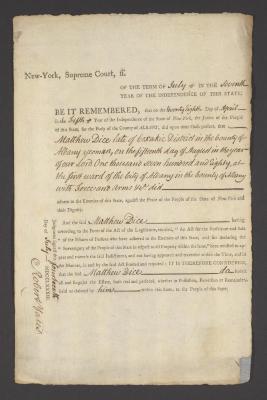 New-York, Supreme Court, ss.
OF THE TERM OF July IN THE Seventh
YEAR OF THE INDEPENDENCE OF THIS STATE;
BE IT REMEMBERED, that on the Twenty Eighth Day of April
in the Fifth Year of the Independence of the State of New-York, the Jurors of the People
of this State, for the Body of the County of ALBANY, did upon their Oath present, that
Matthew Dice late of District in the County of
Albany yeoman, on the fifteenth day of August in the year
of our Lord One thousand seven hundred and Eighty, at
the first ward of the City of Albany in the County of Albany
with Force and Arms &c did
adhere to the Enemies of this State, against the Peace of the People of the State of New-York and
their Dignity.
And the said Matthew Dice having
according to the Form of the Act of the Legislature, entitled, "An Act for the Forfeiture and Sale
"of the Estates of Persons who have adhered to the Enemies of this State, and for declaring the
"Sovereignty of the People of this State in respect to all Property within the same," been notified to ap-
pear and traverse the said Indictment, and not having appeared and traversed within the Time, and in
the Manner, in and by the said Act limited and required: IT IS THEREFORE CONSIDERED,
that the said Matthew Dice do forfeit
all and singular the Estate, both real and personal, whether in Possession, Reversion or Remainder,
held or claimed by him within this State, to the People of this State;
Judgment signed the
Day of July
MDCCLXXXIII.
Robert Yates